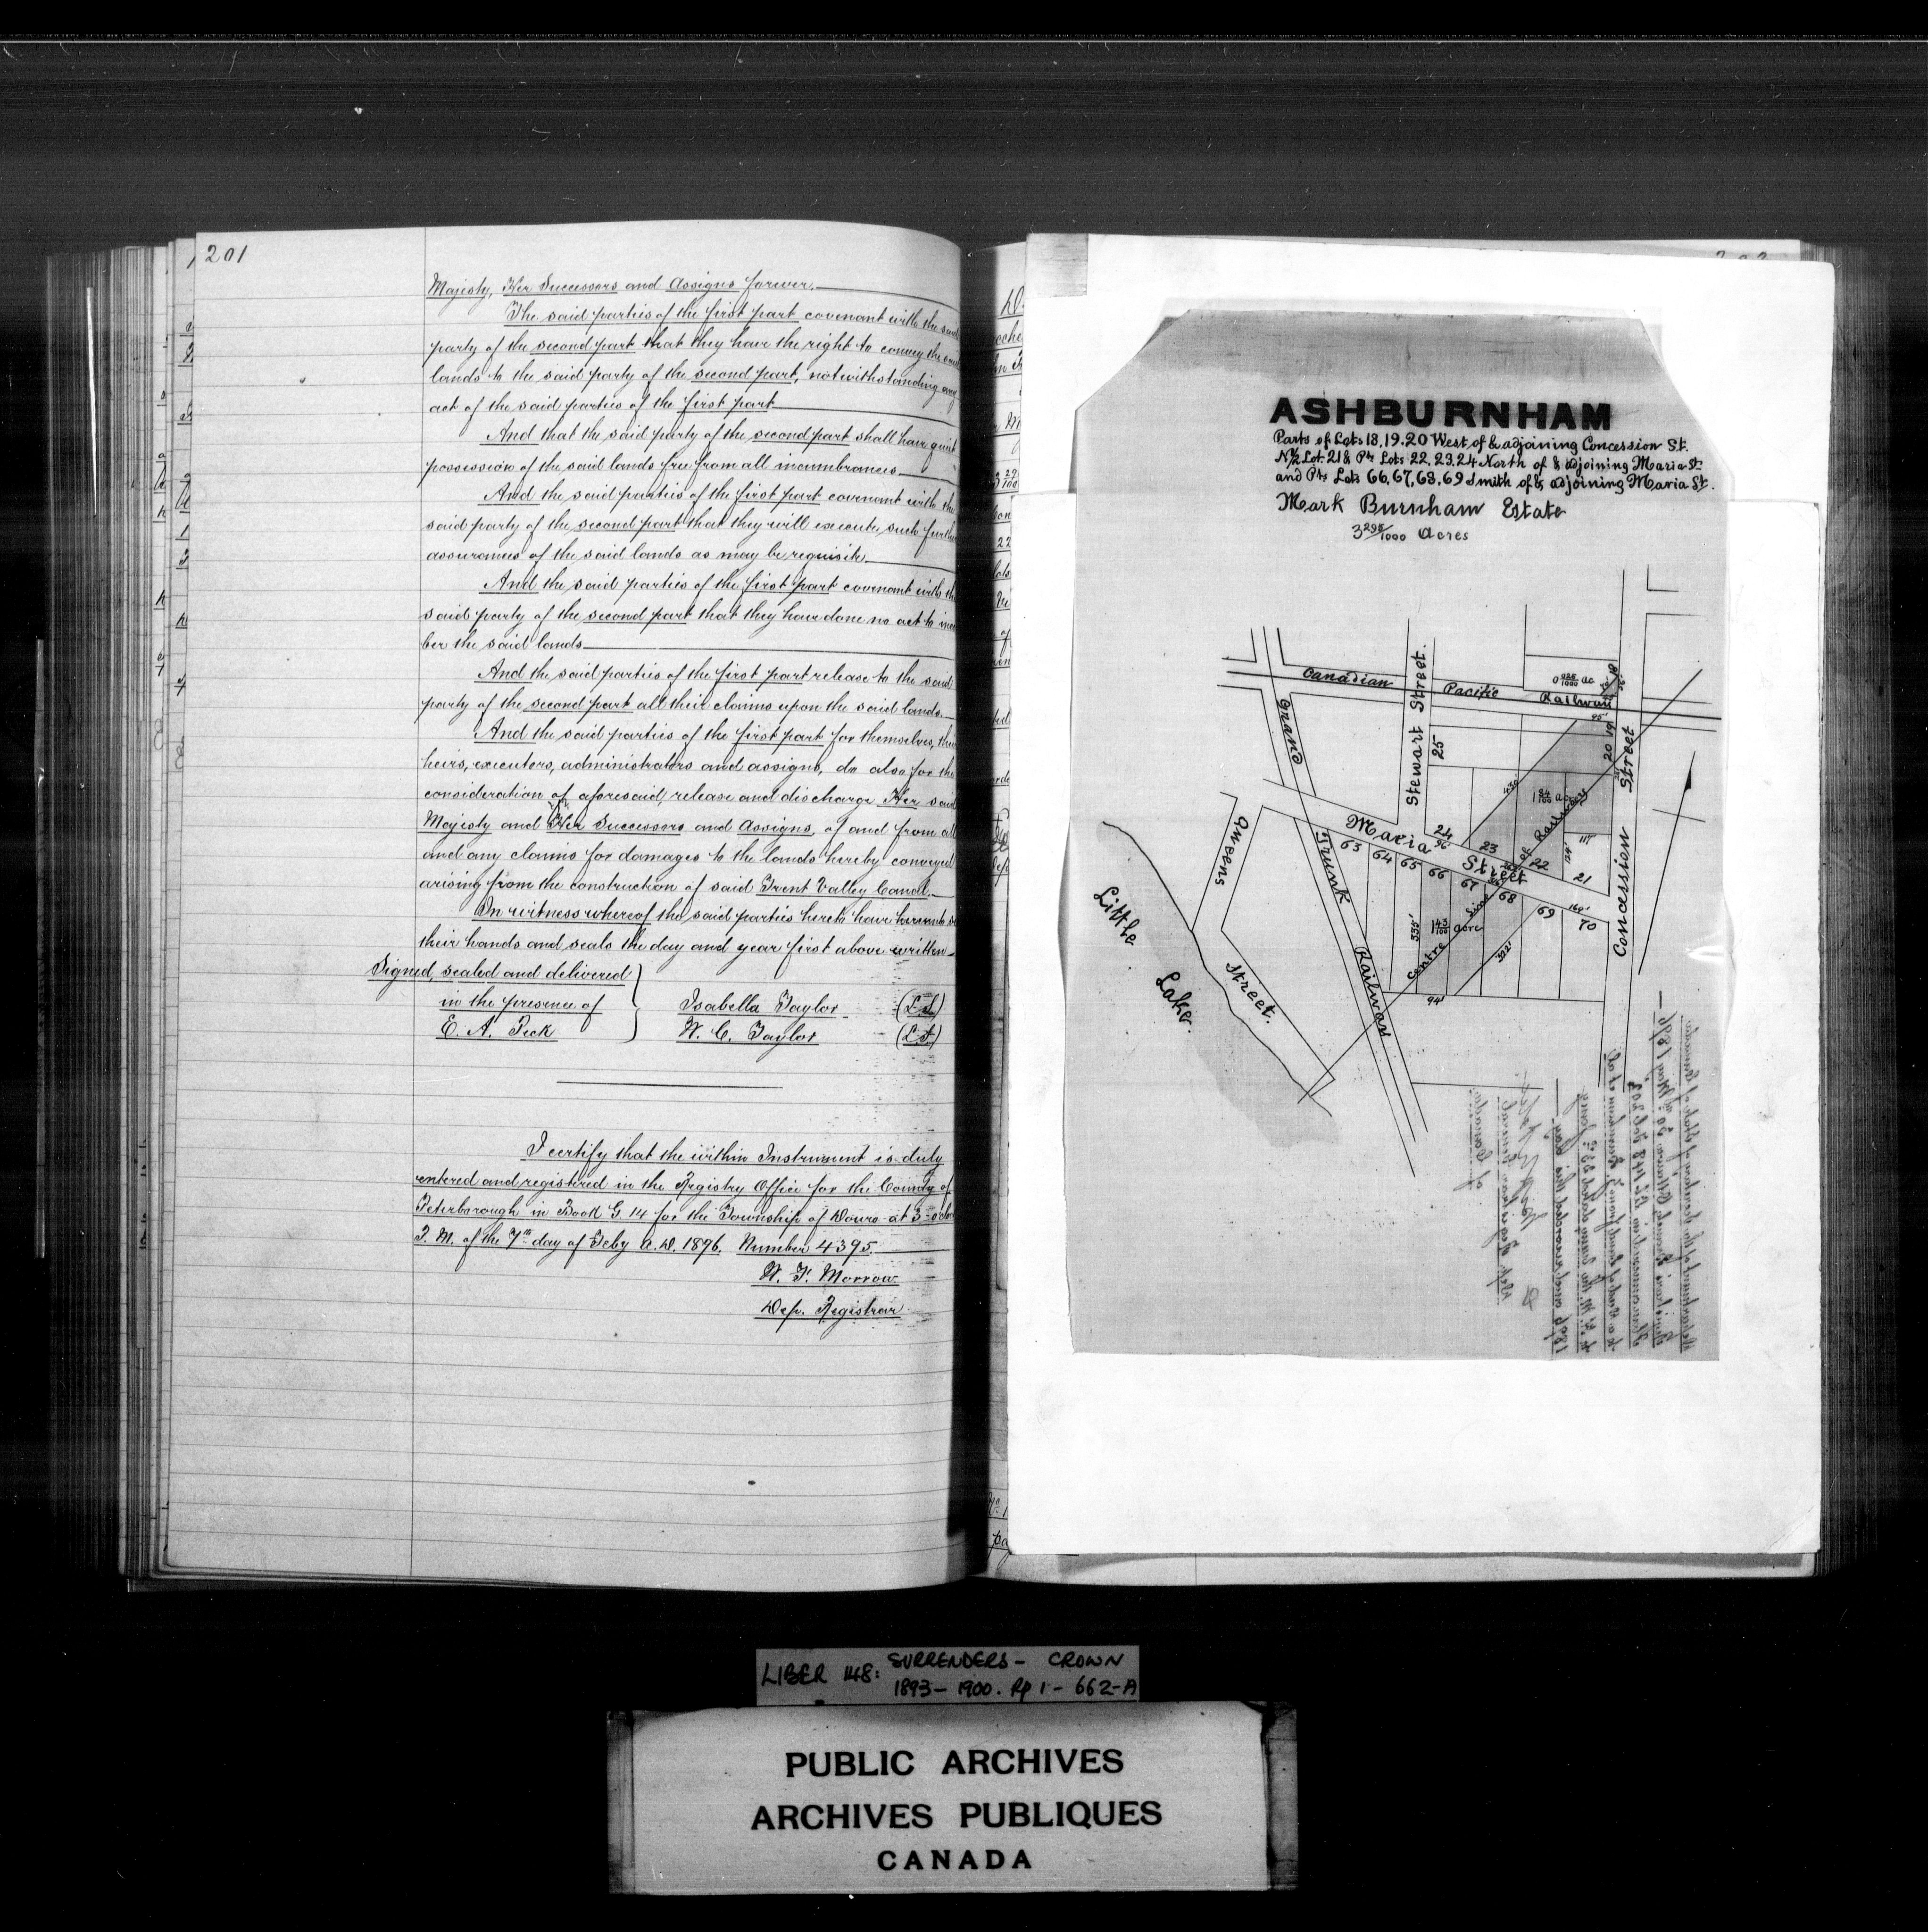 201
Majesty, Her Successors and Assigns forever.
The said parties of the first part covenant with the said
party of the second part that they have the right to convey the said
lands to the said party of the second part, notwithstanding any
act of the said parties of the first part
And that the said party of the second part shall have quiet
possession of the said lands free from all incumbrances
And the said parties of the first part covenant with the
said party of the second part that they will execute such further
assurances of the said lands as may be requisite.
And the said parties of the first part covenant with the
said party of the second part that they have done no act to incum
ber the said lands
And the said parties of the first part release to the said
party of the second part all their claims upon the said lands.
And the said parties of the first part for themselves, their
heirs, executors, administrators and assigns, do also for the
consideration of aforesaid, release and discharge Her said
Majesty and Her Successors and Assigns, of and from all
and any claims for damages to the lands hereby conveyed
arising from the construction of said Trent Valley Canal.
In witness whereof the said parties hereto have hereunto set
their hands and seals the day and year first above written
Signed, sealed and delivered
in the presence of Isabella Taylor (L.S.)
E. A. Peck W. C. Taylor (L.S.)
I certify that the within Instrument is duly
entered and registered in the Registry Office for the County of
Peterborough in Book G 14 for the Township of Douro at 3
P. M. of the 7th day of Feby A. D. 1896. Number 4395.
W. F. Morrow
Dep. Registrar
ASHBURNHAM
Parts of Lots 18, 19, 20 West of & adjoining Concession St.
N½ Lot 21 & Pts Lots 22, 23, 24 North of & adjoining Maria St.
and Pts Lots 66, 67, 68, 69 South of & adjoining Maria St.
Mark Burnham Estate
3 295/1000 Acres
Canadian Pacific Railway
Grand Trunk Railway
Stewart Street.
Concession Street
Maria Street
Queens Street.
Little Lake.
Centre Line of
18
19
20
25
24
23
22
21
63
64
65
66
67
68
69
70
95'
96'
111'
124'
160'
335'
322'
94'
1 43/100 acre
1 84/100 ac
LIBER 148: SURRENDERS - CROWN
1893 - 1900. Pp 1 - 662-A
PUBLIC ARCHIVES
ARCHIVES PUBLIQUES
CANADA